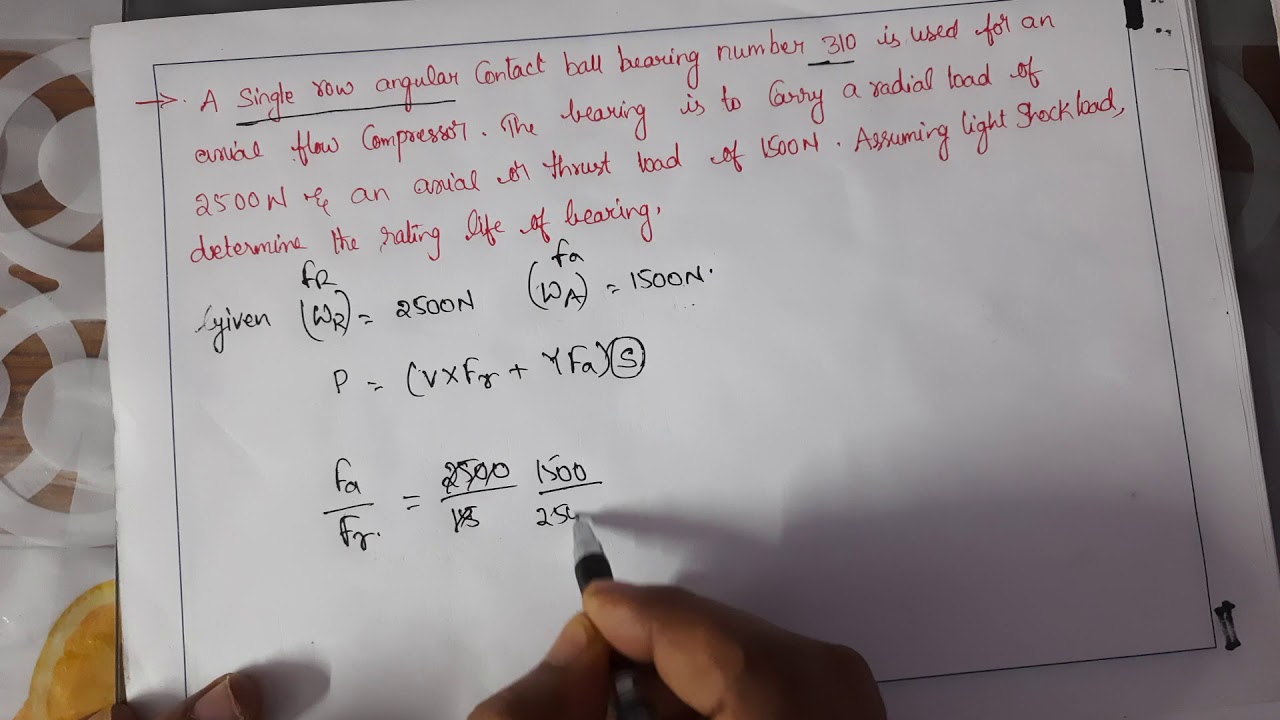 → A Single row angular Contact ball bearing number 310 is used for an
axial flow Compressor. The bearing is to Carry a radial load of
2500N & an axial or thrust load of 1500N. Assuming light shock load,
determine the rating life of bearing.
Given (WR) = 2500N (WA) = 1500N.
FR fa
P = (VXFr + YFa)(S)
Fa/Fr. = 2500/15 1500/250